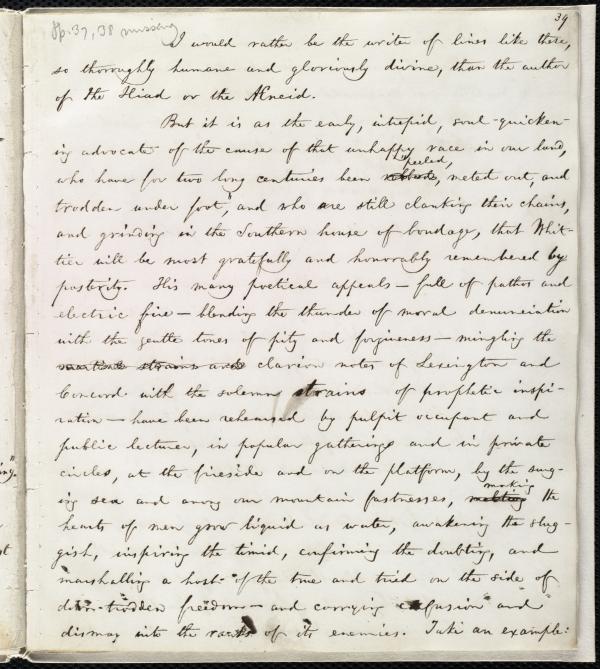 pp. 37, 38 missing
39
I would rather be the writer of lines like these,
so thoroughly humane and gloriously divine, than the author
of the Iliad or the Æneid.
But it is as the early, intrepid, soul-quicken-
ing advocate of the cause of that unhappy race in our land,
peeled,
who have for two long centuries been robbed, meted out, and
trodden under foot, and who are still clanking their chains,
and grinding in the Southern house of bondage, that Whit-
tier will be most gratefully and honorably remembered by
posterity. His many poetical appeals — full of pathos and
electric fire — blending the thunder of moral denunciation
with the gentle tones of pity and forgiveness — mingling the
martial strains and clarion notes of Lexington and
Concord with the solemn strains of prophetic inspi-
ration — have been rehearsed by pulpit occupant and
public lecturer, in popular gatherings and in private
circles, at the fireside and on the platform, by the surg-
making
ing sea and among our mountain fastnesses, melting the
hearts of men grow liquid as water, awakening the slug-
gish, inspiring the timid, confirming the doubting, and
marshalling a host of the true and tried on the side of
down-trodden freedom — and carrying confusion and
dismay into the ranks of its enemies. Take an example: